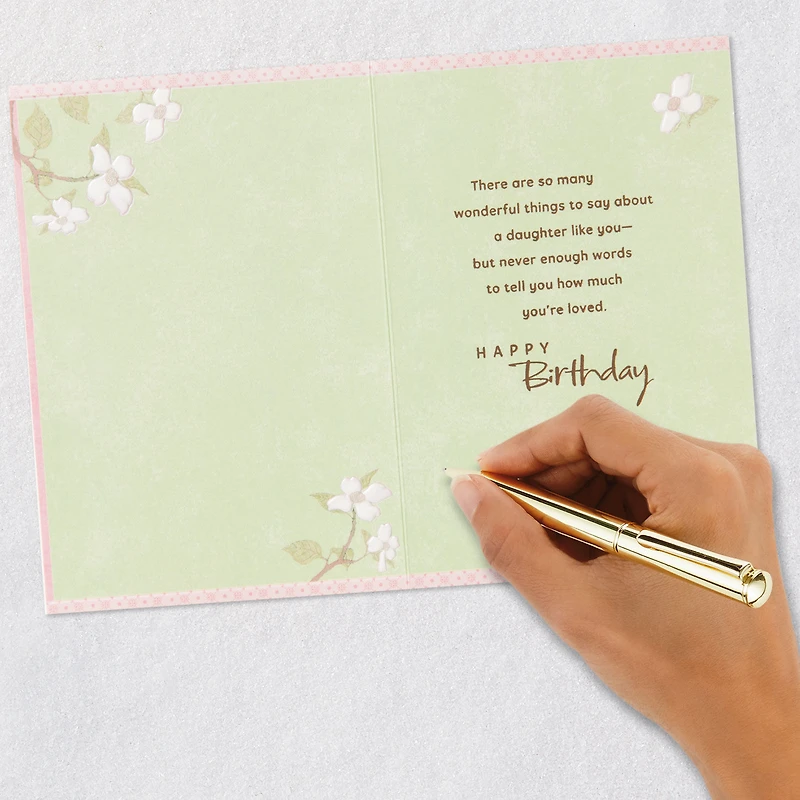 There are so many
wonderful things to say about
a daughter like you—
but never enough words
to tell you how much
you're loved.
HAPPY
Birthday